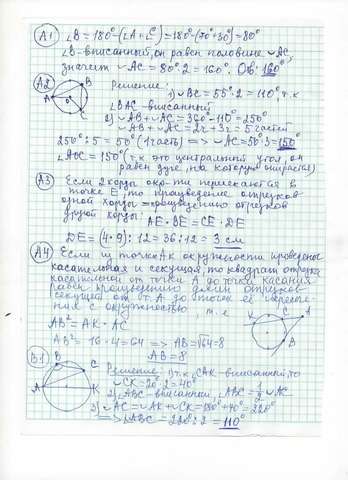 А1 ∠B = 180° - (∠A + ∠C) = 180° - (70° + 30°) = 80°
∠B - вписанный, он равен половине ◡AC,
значит ◡AC = 80° · 2 = 160°. Ов: 160°
А2
Решение:
1) ◡BC = 55° · 2 = 110°, т.к
∠BAC - вписанный
2) ◡AB + ◡AC = 360° - 110° = 250°
◡AB + ◡AC = 2ч + 3ч = 5 частей
250° : 5 = 50° (1 часть) => ◡AC = 50° · 3 = 150°
∠AOC = 150° (т.к это центральный угол, он
равен дуге, на которую опирается)
А3 Если 2 хорды окр-ти пересекаются в
точке E, то произведение отрезков
одной хорды = произведению отрезков
другой хорды:
AE · BE = CE · DE
DE = (4 · 9) : 12 = 36 : 12 = 3 см
А4 Если из точки А к окружности проведены
касательная и секущая, то квадрат отрезка
касательной от точки А до точки касания
равен произведению длин отрезков
секущей от т. А до точек её пересече-
ния с окружностью, т.е
AB² = AK · AC
AB² = 16 · 4 = 64 => AB = √64 = 8
AB = 8
В1
Решение: 1) т.к ∠CAK - вписанный, то
◡CK = 20° · 2 = 40°
2) ∠ABC - вписанный, ∠ABC = 1/2 ◡AC
3) ◡AC = ◡AK + ◡CK = 180° + 40° = 220°
=> ∠ABC = 220° : 2 = 110°